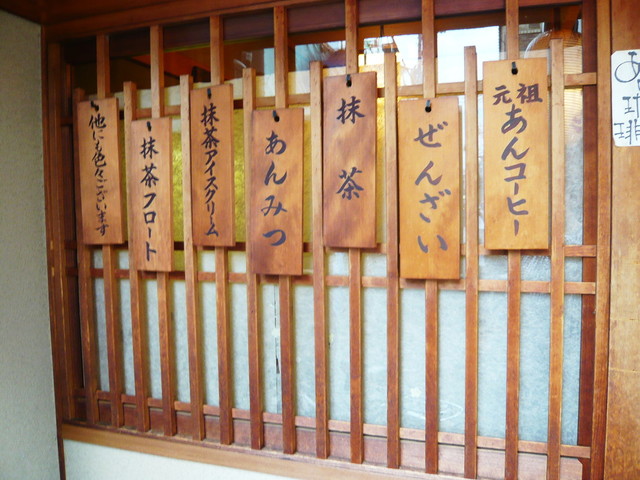 元祖
あんコーヒー
ぜんざい
抹茶
あんみつ
抹茶アイスクリーム
抹茶フロート
他にも色々ございます